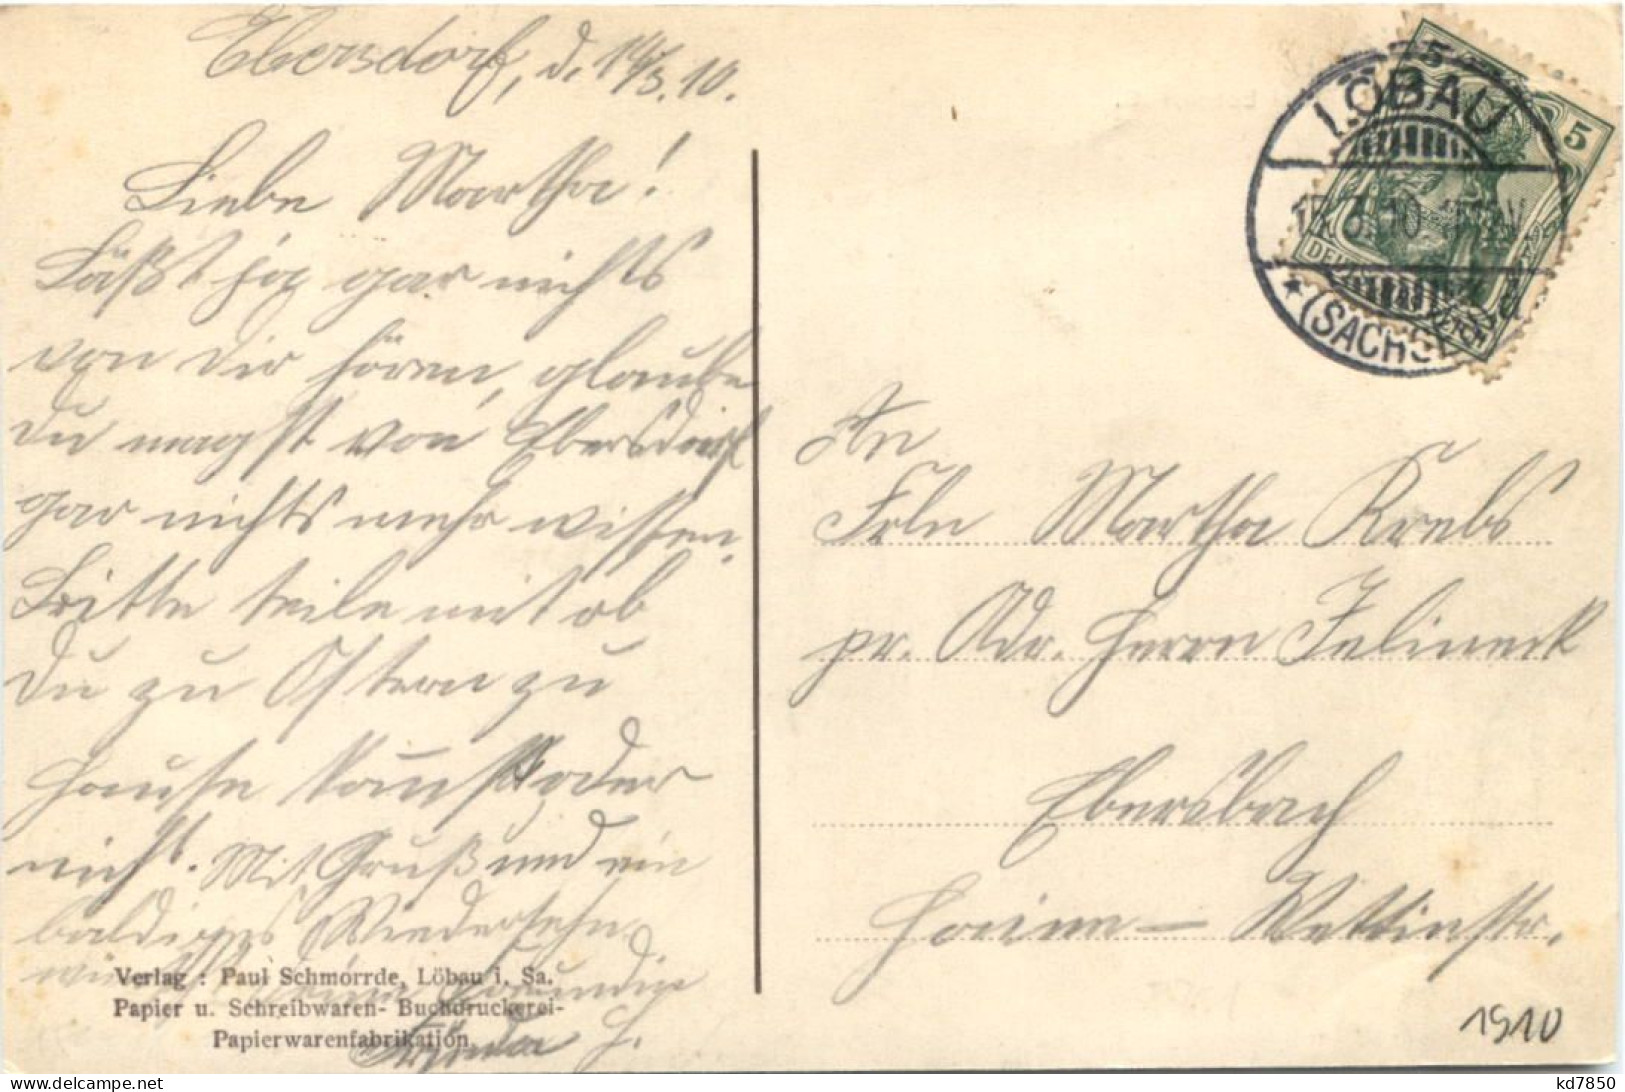 Ebersdorf, d. 14/3.10.
Liebe Martha!
Läßt ja gar nichts
von dir hören, glaube
du magst von Ebersdorf
gar nichts mehr wissen.
Bitte teile mit ob
du zu Ostern zu
Hause kommst oder
nicht. Mit Gruß und ein
baldiges Wiedersehn
deine Freundin
Verlag: Paul Schmorrde, Löbau i. Sa.
Papier u. Schreibwaren- Buchdruckerei-
Papierwarenfabrikation.
LÖBAU
15.3.10
* (SACHSEN)
5
An
Frln Martha Krebs
pr. Adr. Herrn Jelineck
Ebersbach
Wettinstr.
1910
kd7850